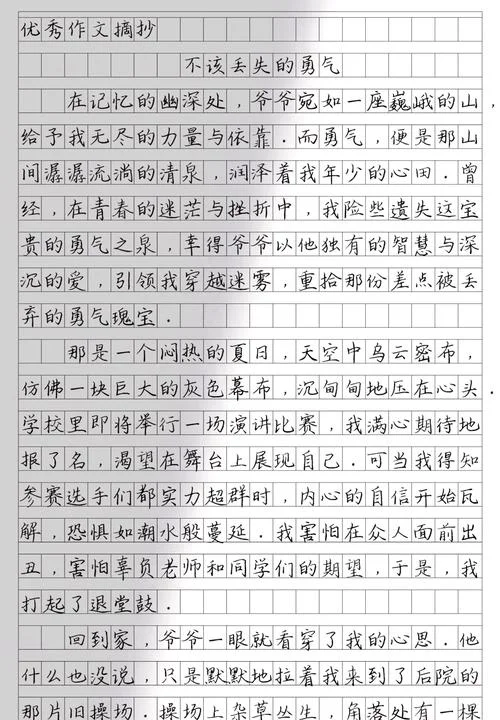 优秀作文摘抄
不该丢失的勇气
在记忆的幽深处，爷爷宛如一座巍峨的山，
给予我无尽的力量与依靠．而勇气，便是那山
间潺潺流淌的清泉，润泽着我年少的心田．曾
经，在青春的迷茫与挫折中，我险些遗失这宝
贵的勇气之泉，幸得爷爷以他独有的智慧与深
沉的爱，引领我穿越迷雾，重拾那份差点被丢
弃的勇气瑰宝．
那是一个闷热的夏日，天空中乌云密布，
仿佛一块巨大的灰色幕布，沉甸甸地压在心头．
学校里即将举行一场演讲比赛，我满心期待地
报了名，渴望在舞台上展现自己．可当我得知
参赛选手们都实力超群时，内心的自信开始瓦
解，恐惧如潮水般蔓延．我害怕在众人面前出
丑，害怕辜负老师和同学们的期望，于是，我
打起了退堂鼓．
回到家，爷爷一眼就看穿了我的心思．他
什么也没说，只是默默地拉着我来到了后院的
那片旧操场．操场上杂草丛生，角落处有一棵